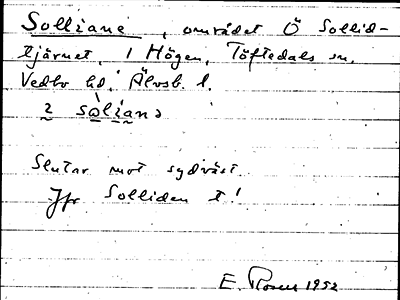 Solliane, området Ö Sollid-
tjärnet, i Högen, Töftedals sn,
Vedbo hd, Älvsb. l.
2 sòlianə
Slutar mot sydväst.
Jfr Solliden t!
E. Rosen 1952